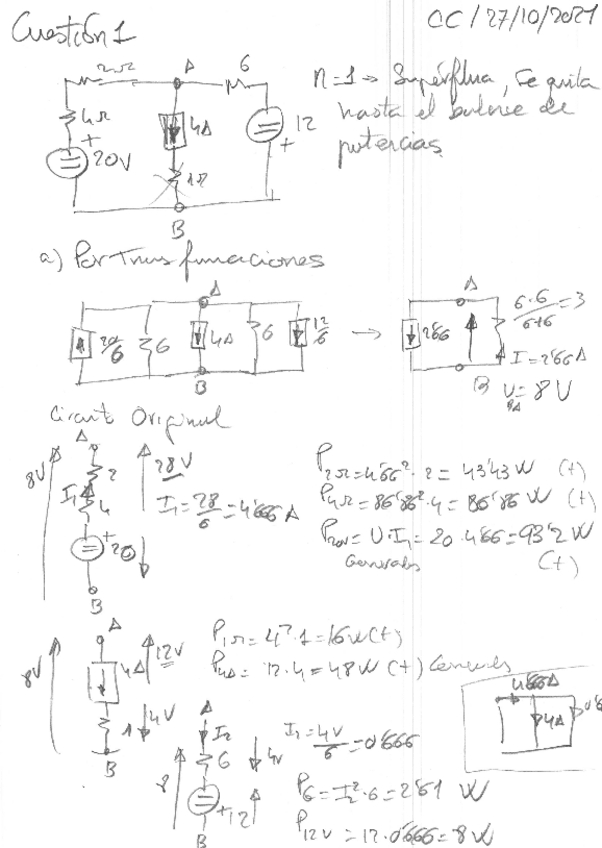 Cuestión 1
CC / 27/10/2021
2Ω A 6
4Ω + 4A 12 +
20V 1Ω
B
n=1 → Supérflua, se quita
hasta el balance de
potencias
a) Por Transformaciones
A
20/6 6 4A 6 12/6
B
→
A
2'66
6·6/6+6 = 3
I = 2'66 A
B U_BA = 8 V
Circuito Original
A
8V 2 28V
I₁ 4 I₁ = 28/6 = 4'666 A
+ 20
B
P2Ω = 4'66² · 2 = 43'43 W (+)
P4Ω = 86'86² · 4 = 86'86 W (+)
P20V = U · I₁ = 20 · 4'66 = 93'2 W
(+)
A
8V 4A 12V
1 4V
B
P1Ω = 4² · 1 = 16 W (+)
P4A = 12 · 4 = 48 W (+)
4'666A
4A
A
I₂
8 6 4V
+ 12
B
= 4V/6 = 0'666
P6 = I₂² · 6 = 2'61 W
P12V = 12 · 0'666 = 8 W